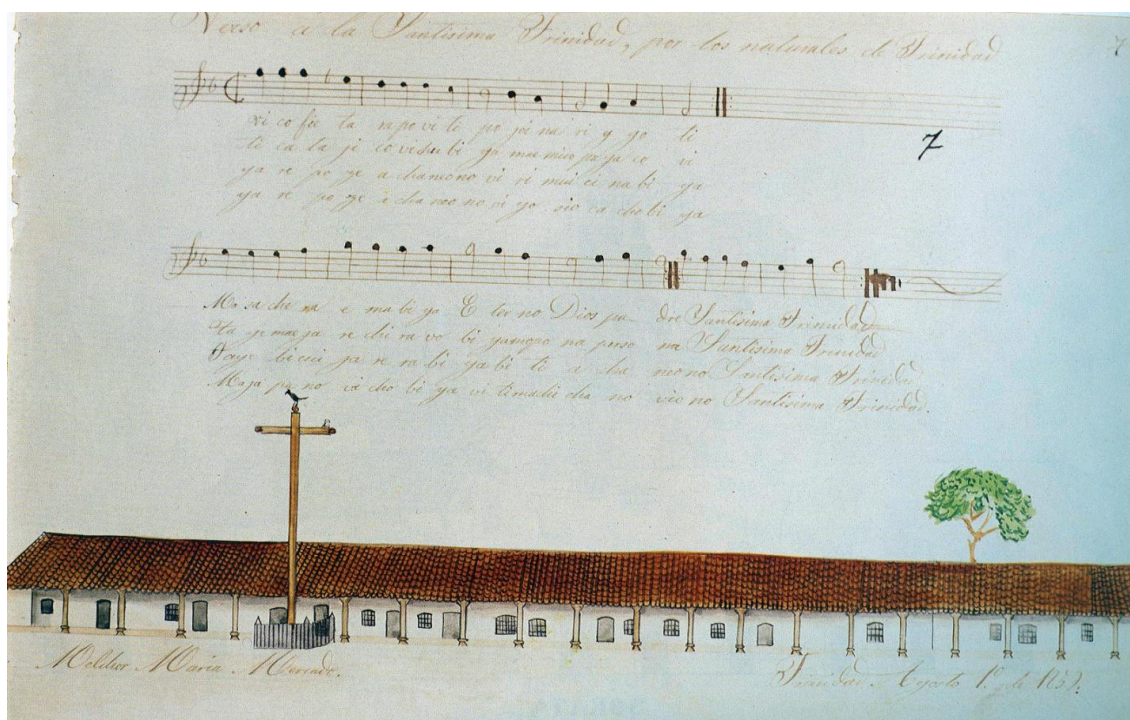 Verso a la Santisima Trinidad, por los naturales de Trinidad
7
7
xi co fee ta ra po vi ti po joi na ri y yo ti
ti ca ta ji co vi chu bi ya mue mico pa ya co vi
ya re po ye a cha mo no vi ri mui ci na bi ya
ya re po ye a cha mo no vi yo sio ca cho bi ya
Ma sa che na e ma bi ya E ter no Dios pa dre Santisima Trinidad
ta ye mue ja re chi ra vo bi ya na perso na Santisima Trinidad
bi cui ja re ra bi ya bi ti a cha mo no Santisima Trinidad
Ma ja pa no vi cho bi ya vi ti cha no vio no Santisima Trinidad.
Melchor Maria Mercado.
Trinidad Agosto 1º de 1859.